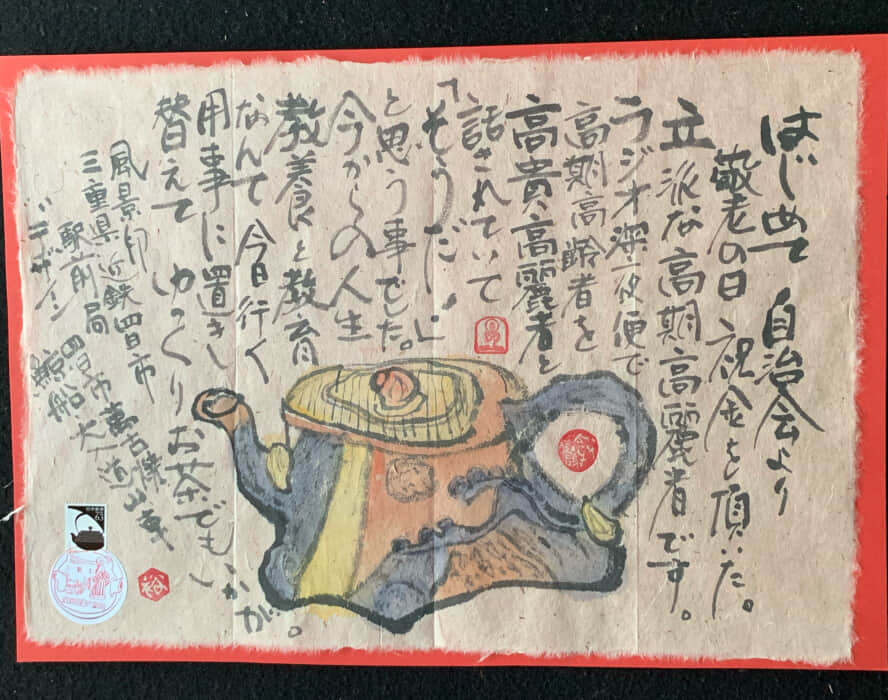 はじめて自治会より
敬老の日祝金を頂いた。
立派な高期高麗者です。
ラジオ深夜便で
高期高齢者を
高貴高麗者と
話されていて
「そうだ!」
と思う事でした。
今からの人生
教養と教育
なんて今日行く
用事に置きし
替えてゆっくりお茶でもいかが。
風景印
三重県近鉄四日市
駅前局
四日市萬古焼山車
鯨船大入道
デザイン
裕